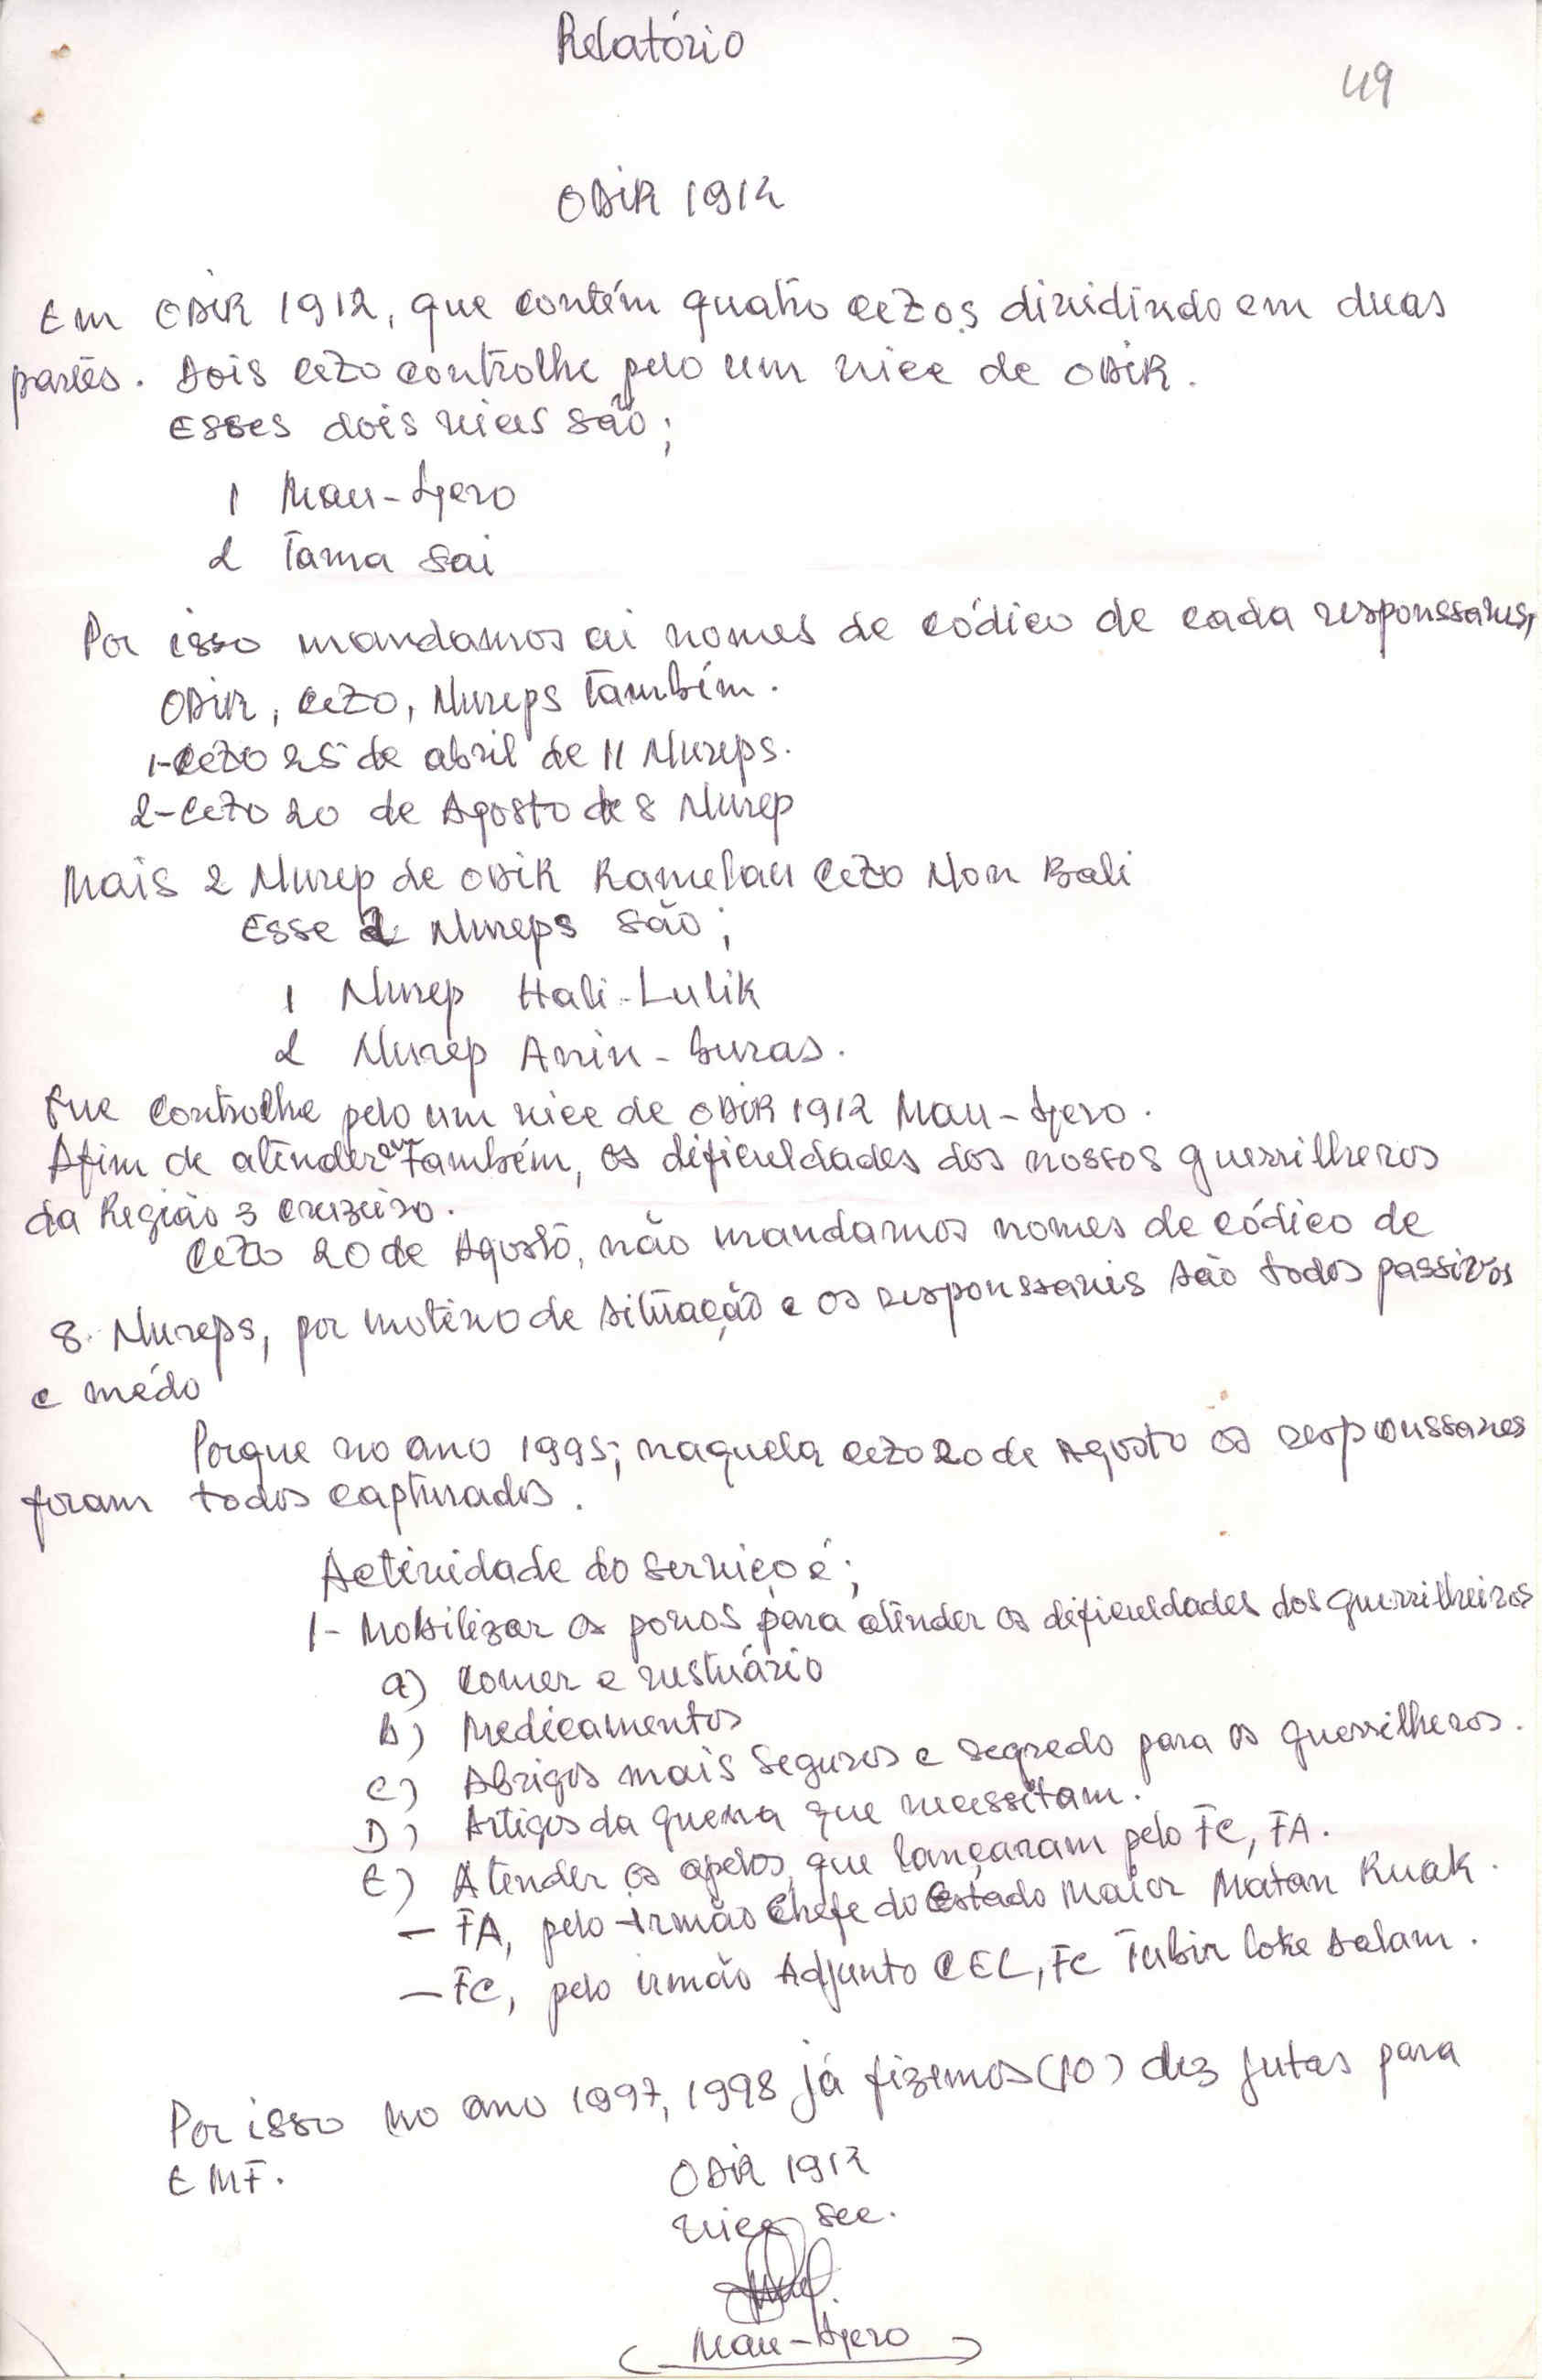 Relatório
49
ODIR 1912
Em ODIR 1912, que contém quatro cezos dividindo em duas
partes. Dois cezo controlhe pelo um vice de ODIR.
Esses dois vices são;
1 Mau-Ajero
2 Tama Sai
Por isso mandamos ai nomes de códico de cada responssaves,
ODIR, cezo, Nureps também.
1-Cezo 25 de abril de 11 Nureps.
2-Cezo 20 de Agosto de 8 Nurep
Mais 2 Nurep de ODIR Ramelau Cezo Non Bali
Esse 2 Nureps são;
1 Nurep Hali-Lulik
2 Nurep Anin-buras.
Que controlhe pelo um vice de ODIR 1912 Mau-Ajero.
Afim de atender que também, os dificuldades dos nossos guerrilheros
da Região 3 cruzeiro.
Cezo 20 de Agosto, não mandamos nomes de códico de
8 Nureps, por motivo de situação e os responssaveis são todos passivos
e médo
Porque no ano 1995; naquela cezo 20 de Agosto os responssaves
foram todos capturados.
Actividade do serviço é;
1- Mobilizar os povos para atender os dificuldades dos guerrilheiros
a) Comer e vestuário
b) Medicamentos
c) Abrigos mais seguros e segredo para os guerrilheros.
D) Artigos da guerra que necessitam.
E) Atender os apelos, que lançaram pelo FC, FA.
- FA, pelo irmão Chefe do Estado Maior Matan Ruak.
- FC, pelo irmão Adjunto CEL, FC Tubir loke Salam.
Por isso no ano 1997, 1998 já fizemos (10) dez jutas para
EMF.
ODIR 1912
vice sec.
(Mau-Ajero)